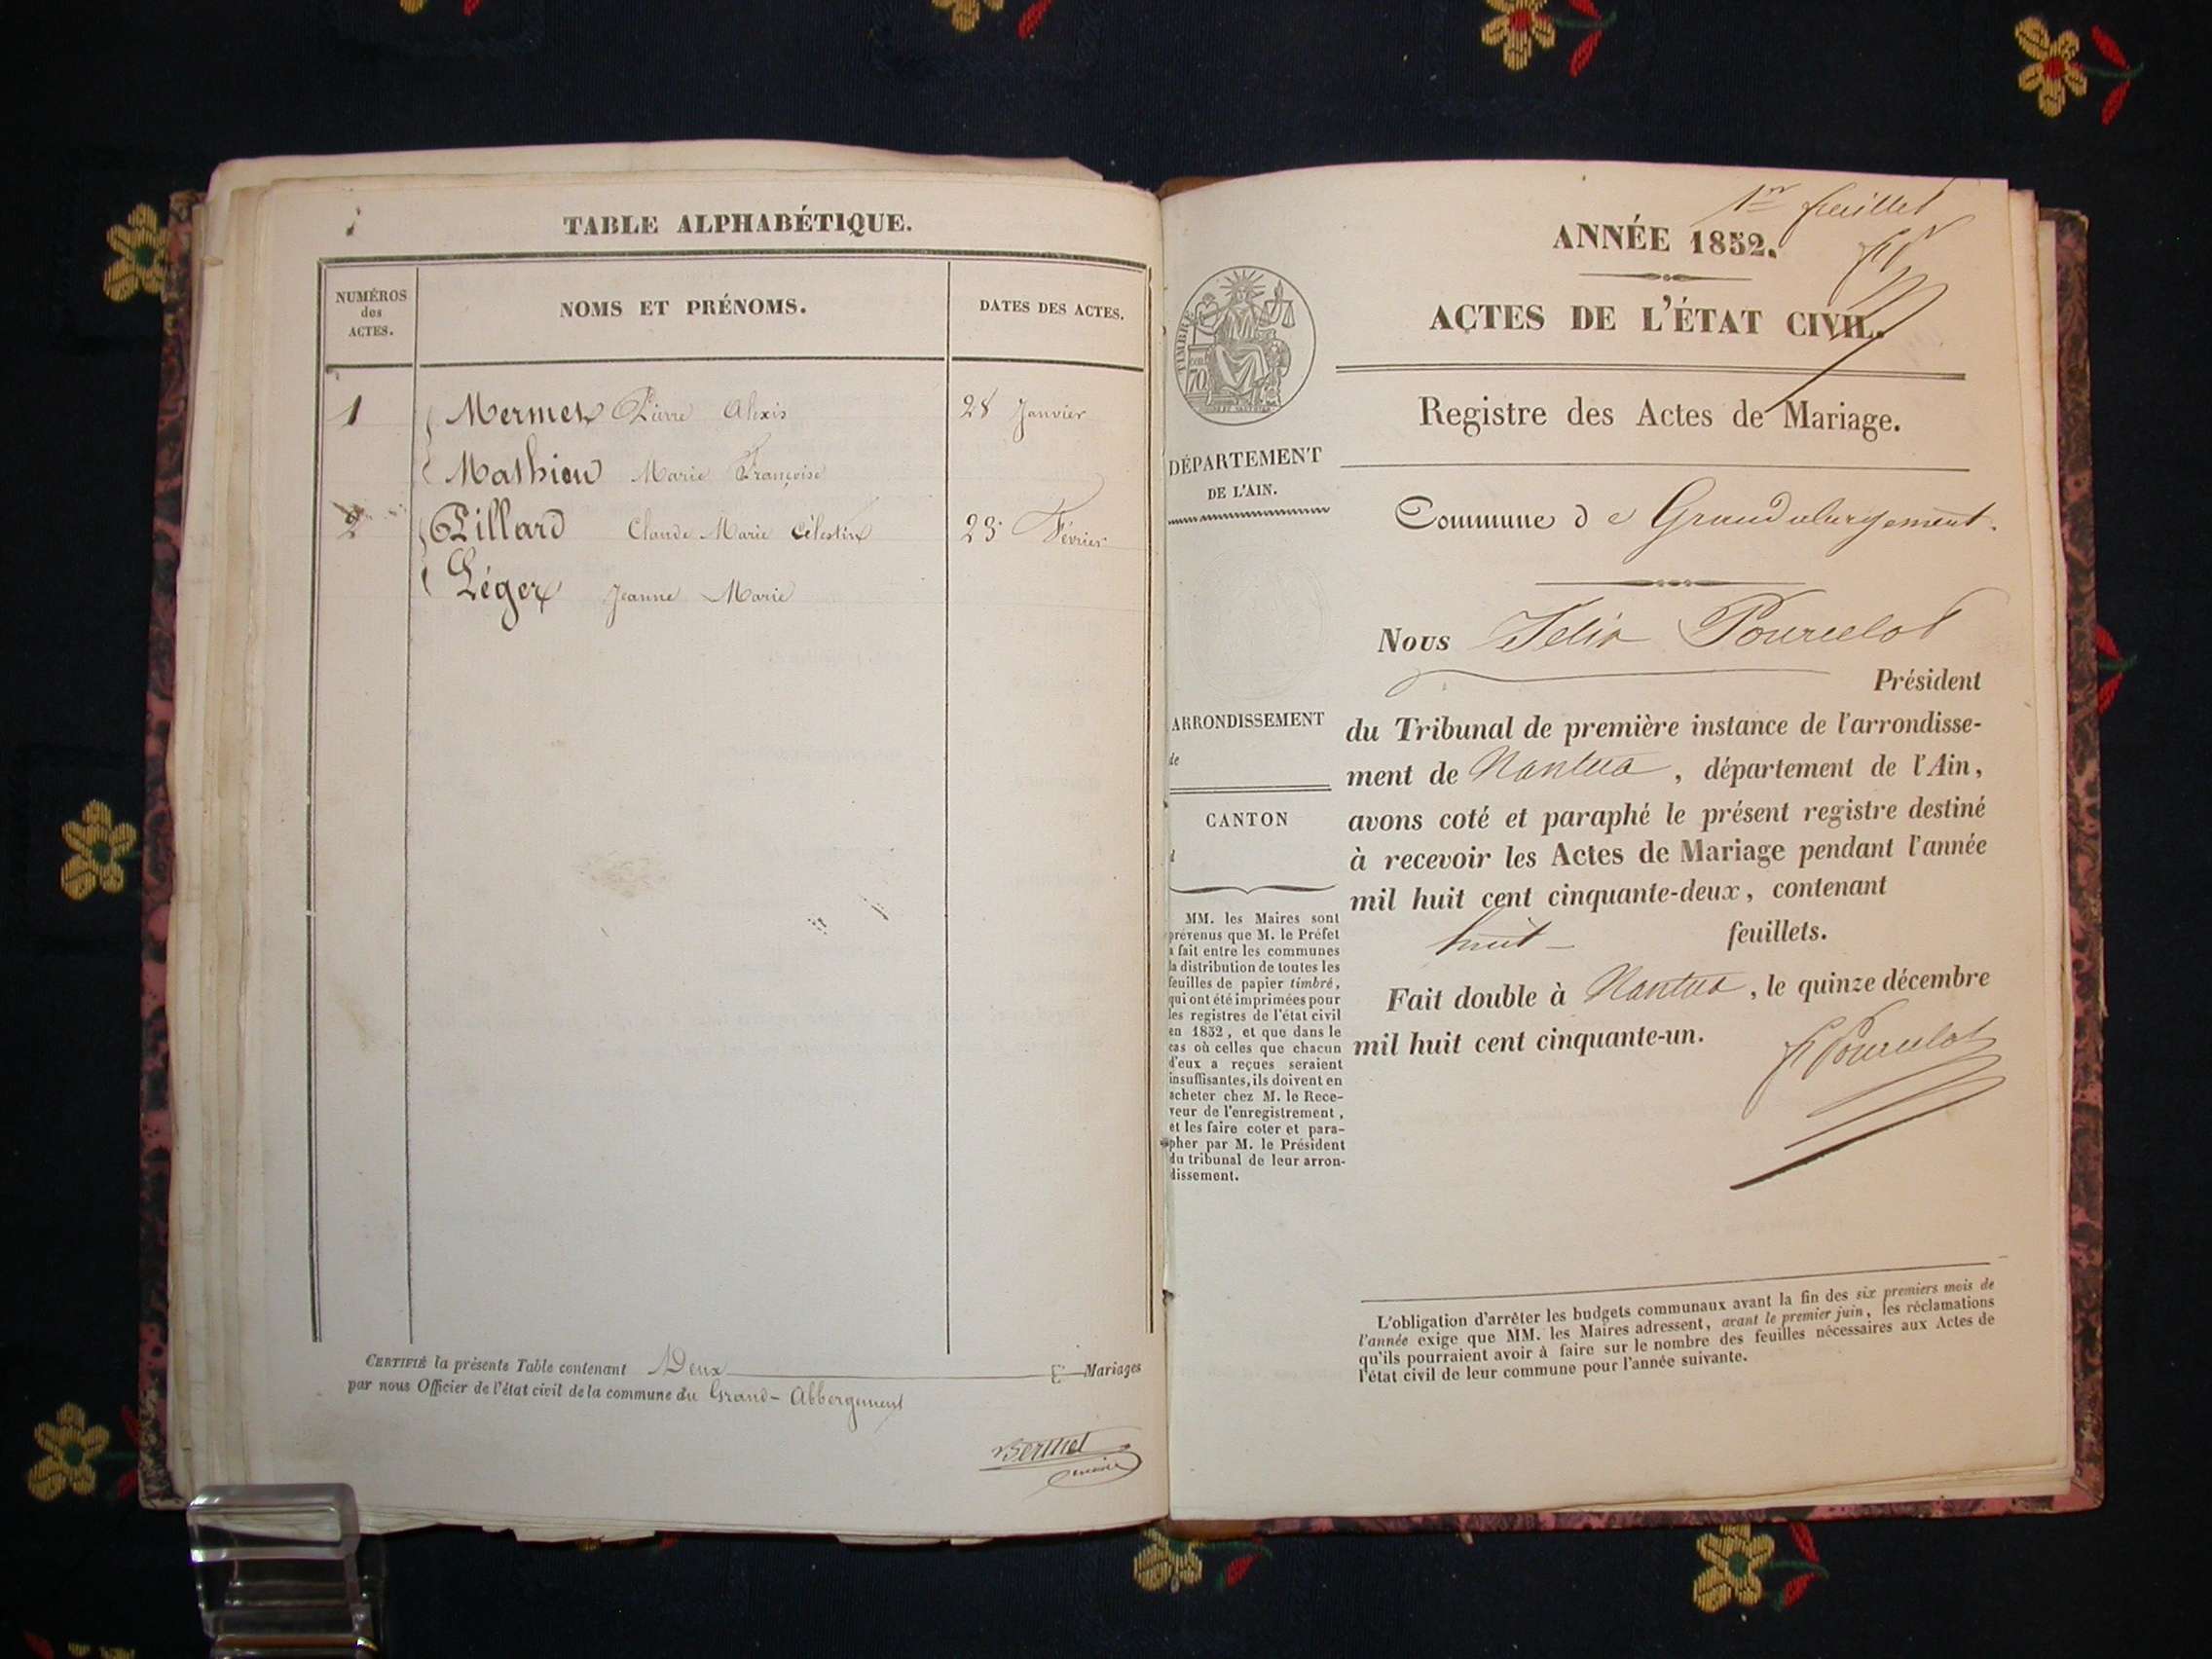 TABLE ALPHABÉTIQUE.
NUMÉROS
des
ACTES.
NOMS ET PRÉNOMS.
DATES DES ACTES.
1 Mermet Pierre Alexis 28 Janvier
Mathieu Marie Françoise
2 Pillard Claude Marie Célestin 23 Février
Léger Jeanne Marie
CERTIFIÉ la présente Table contenant Deux Mariages
par nous Officier de l'état civil de la commune du Grand-Abbergement
Berthet
maire
1er feuillet
ANNÉE 1852.
ACTES DE L'ÉTAT CIVIL.
Registre des Actes de Mariage.
TIMBRE
70
DÉPARTEMENT
DE L'AIN.
Commune de Grandabergement.
Nous Félix Pourcelot
Président
du Tribunal de première instance de l'arrondisse-
ment de Nantua, département de l'Ain,
avons coté et paraphé le présent registre destiné
à recevoir les Actes de Mariage pendant l'année
mil huit cent cinquante-deux, contenant
huit feuillets.
Fait double à Nantua, le quinze décembre
mil huit cent cinquante-un.
F Pourcelot
ARRONDISSEMENT
de
CANTON
d
MM. les Maires sont
prévenus que M. le Préfet
a fait entre les communes
la distribution de toutes les
feuilles de papier timbré,
qui ont été imprimées pour
les registres de l'état civil
en 1852, et que dans le
cas où celles que chacun
d'eux a reçues seraient
insuffisantes, ils doivent en
acheter chez M. le Rece-
veur de l'enregistrement,
et les faire coter et para-
pher par M. le Président
du tribunal de leur arron-
dissement.
L'obligation d'arrêter les budgets communaux avant la fin des six premiers mois de
l'année exige que MM. les Maires adressent, avant le premier juin, les réclamations
qu'ils pourraient avoir à faire sur le nombre des feuilles nécessaires aux Actes de
l'état civil de leur commune pour l'année suivante.